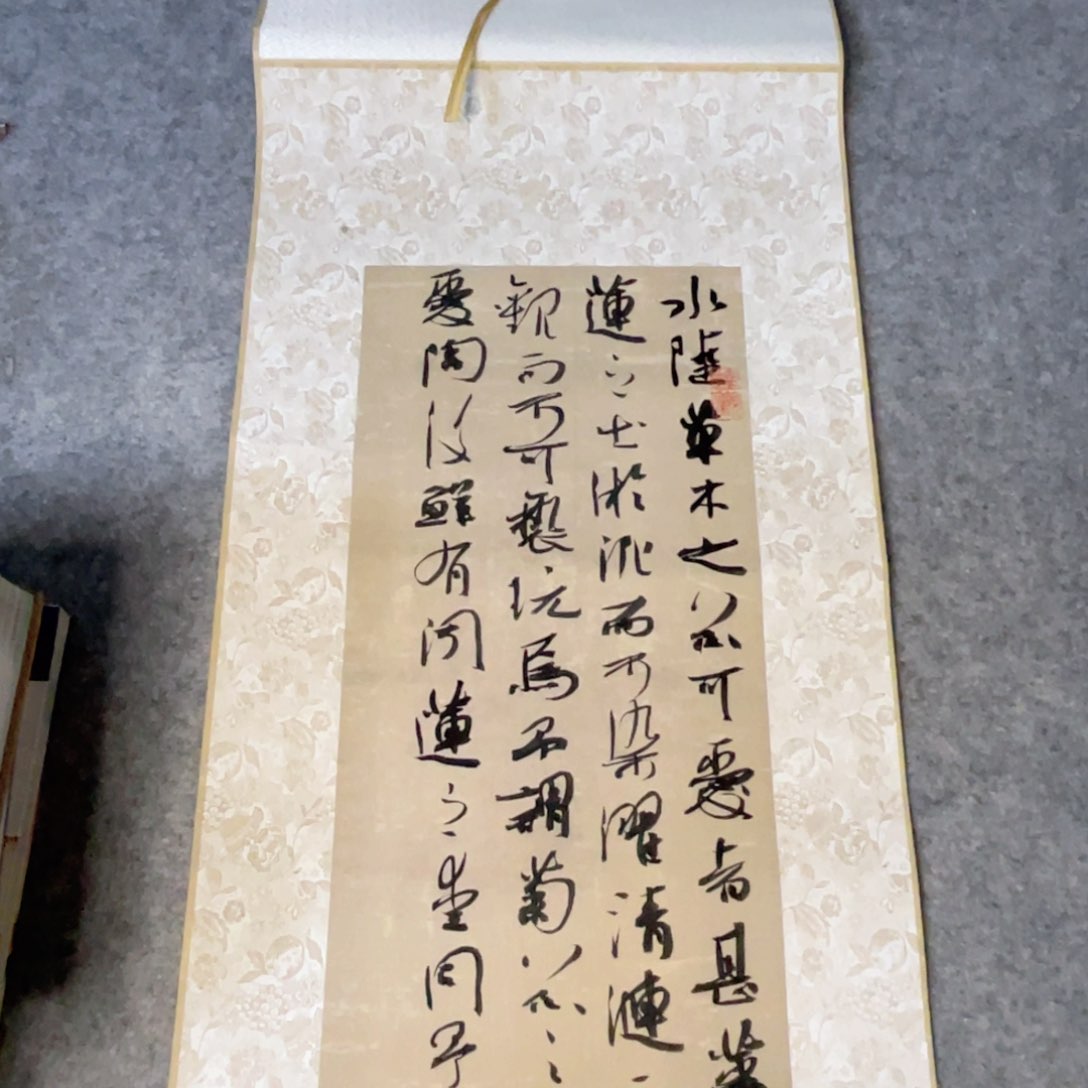 水陸草木之花可愛者甚蕃
蓮之出淤泥而不染濯清漣
觀而不可褻玩焉予謂菊花之
愛陶後鮮有聞蓮之愛同予